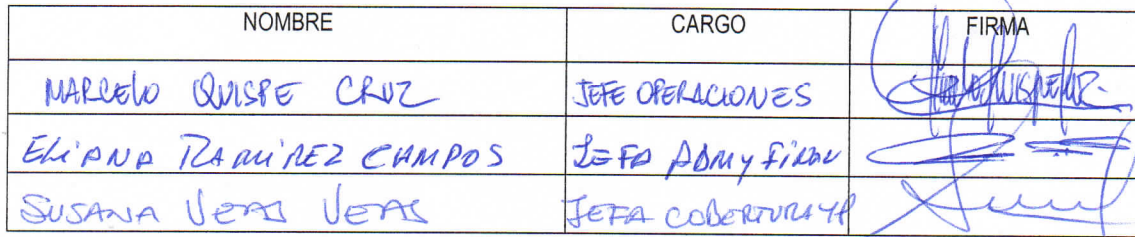 NOMBRE CARGO FIRMA
MARCELO QUISPE CRUZ JEFE OPERACIONES
ELIANA RAMIREZ CAMPOS JEFA ADM y FINAN
SUSANA VERAS VERAS JEFA COBERTURA